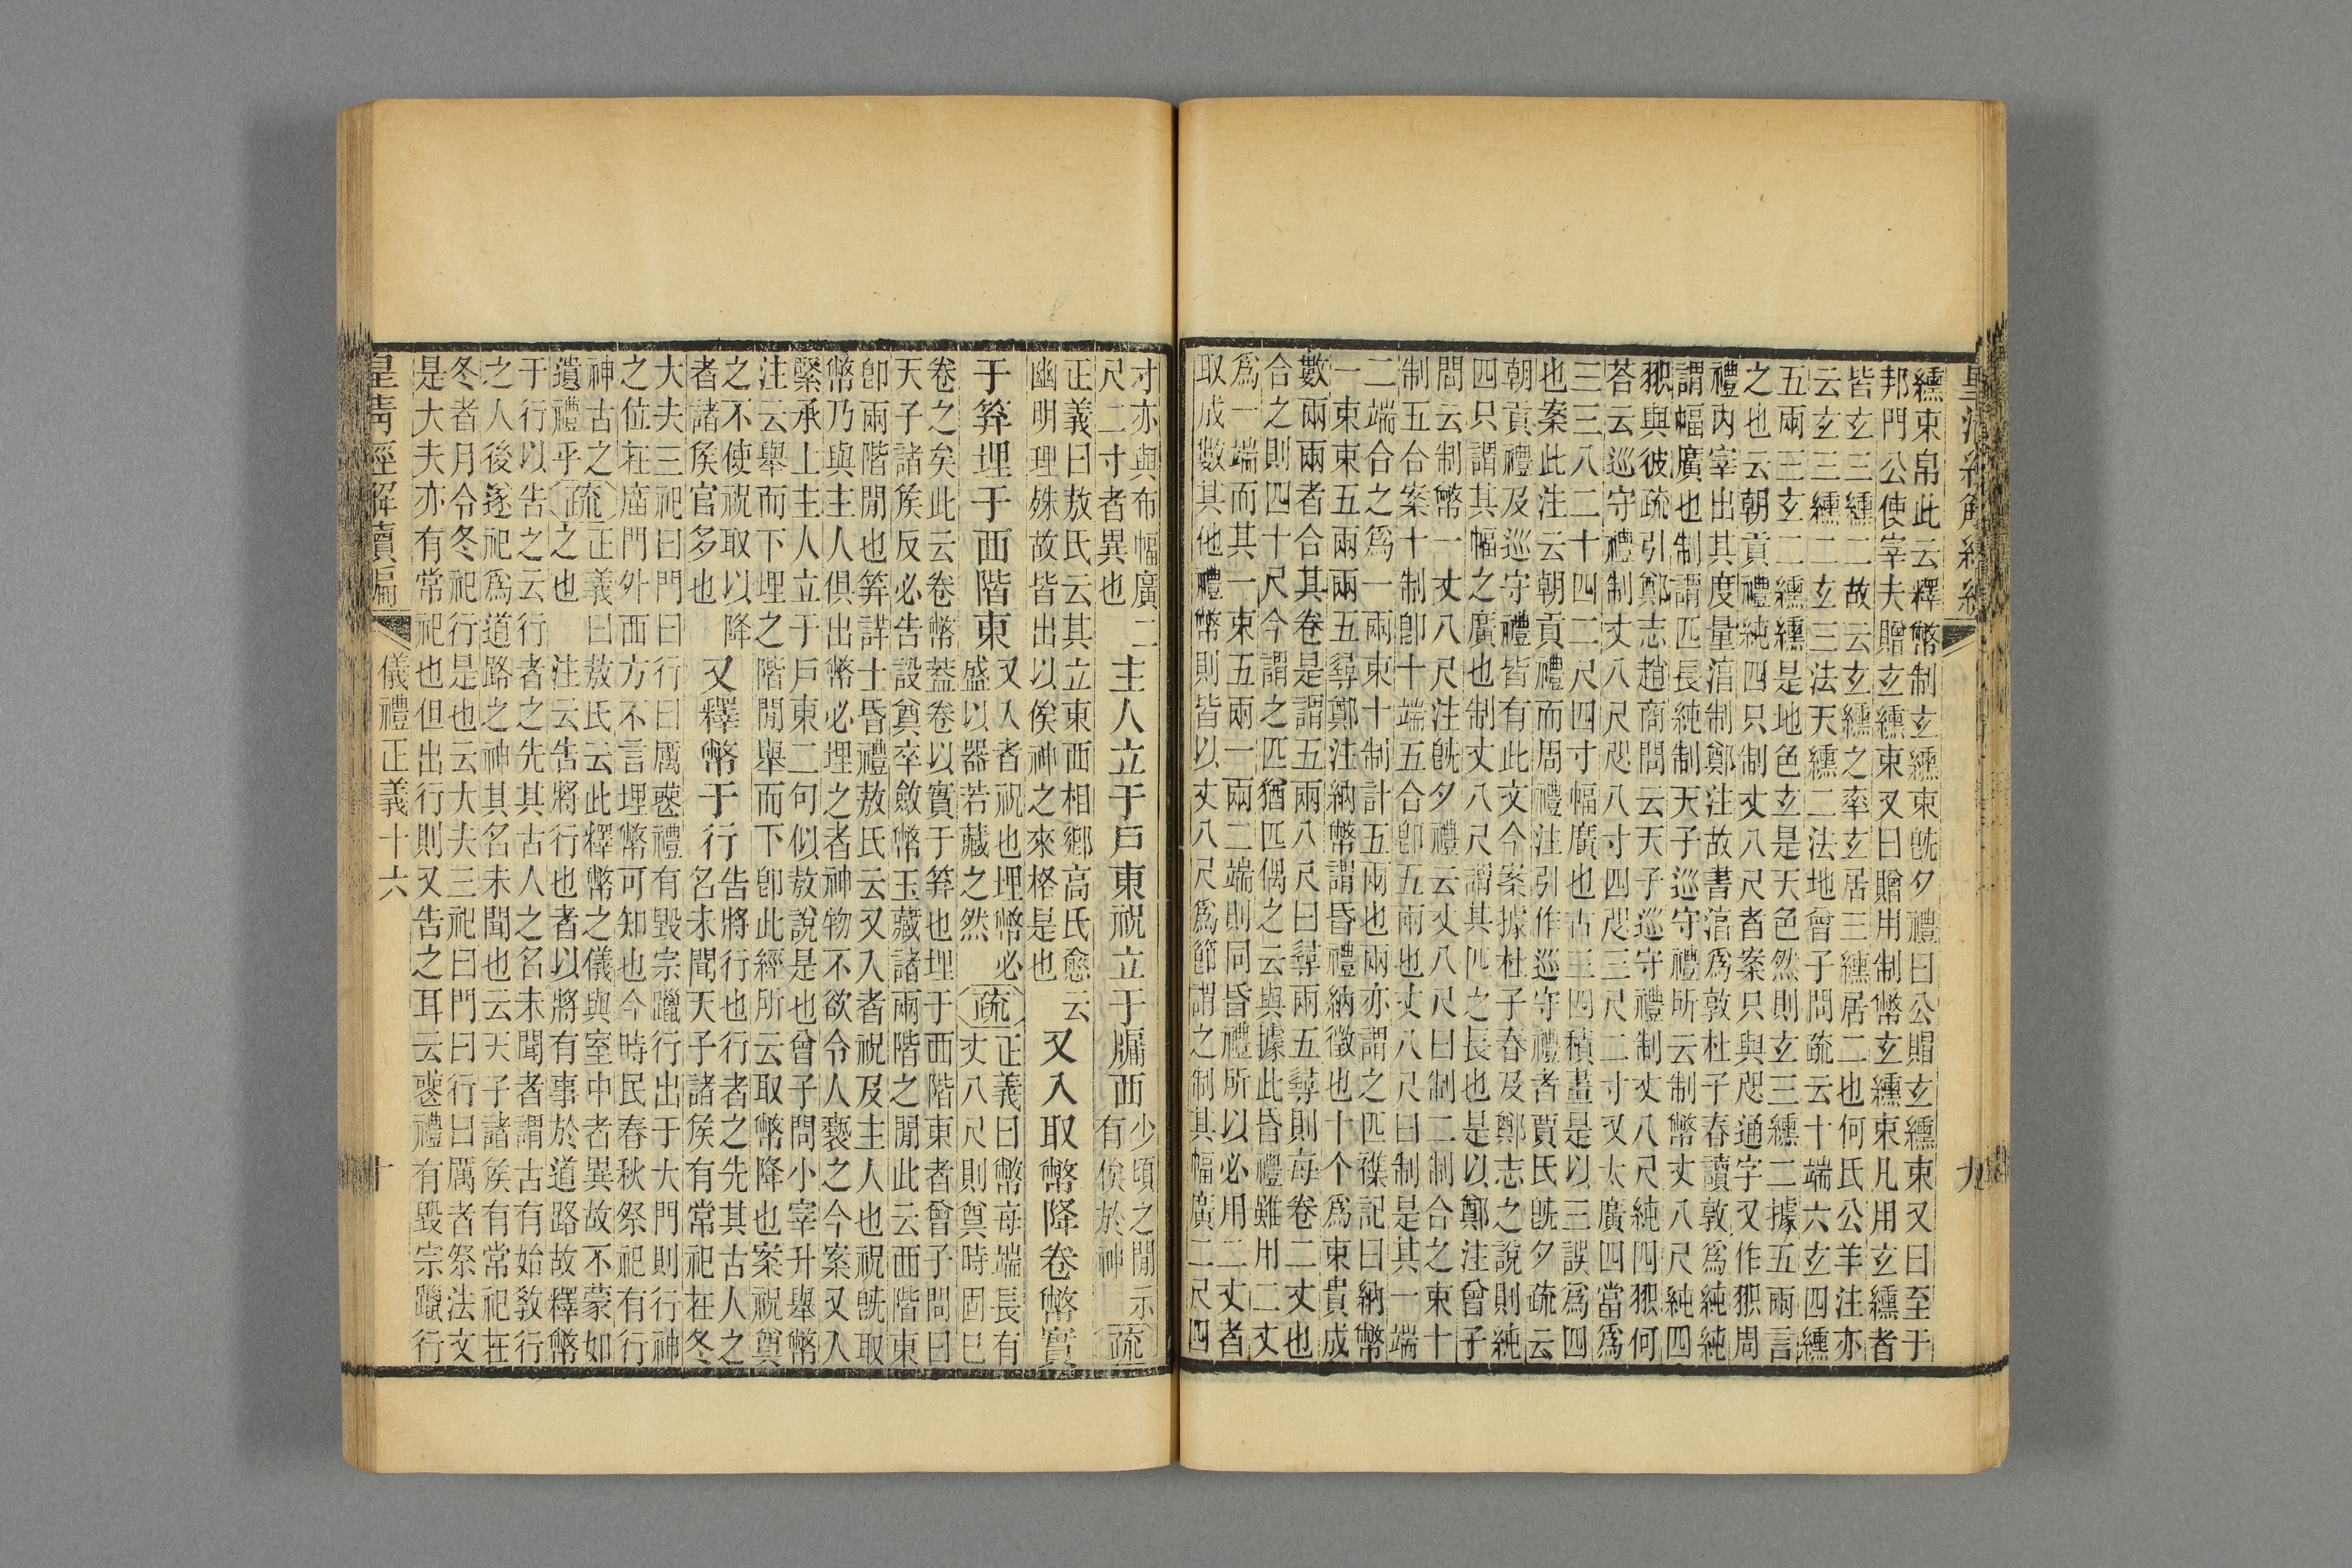 皇清經解續編
九
纁束帛此云釋幣制玄纁束旣夕禮曰公賵玄纁束又曰至于
邦門公使宰夫贈玄纁束又曰贈用制幣玄纁束凡用玄纁者
皆玄三纁二故云玄纁之率玄居三纁居二也何氏公羊注亦
云玄三纁二玄三法天纁二法地曾子問疏云十端六玄四纁
五兩三玄二纁纁是地色玄是天色然則玄三纁二據五兩言
之也云朝貢禮純四只制丈八尺者案只與咫通字又作𧿁周
禮內宰出其度量淳制鄭注故書淳爲敦杜子春讀敦爲純純
謂幅廣也制謂匹長純制天子巡守禮所云制幣丈八尺純四
𧿁與彼疏引鄭志趙商問云天子巡守禮制丈八尺純四𧿁何
荅云巡守禮制丈八尺咫八寸四咫三尺二寸又太廣四當爲
三三八二十四二尺四寸幅廣也古三四積畫是以三誤爲四
也案此注云朝貢禮而周禮注引作巡守禮者賈氏旣夕疏云
朝貢禮及巡守禮皆有此文今案據杜子春及鄭志之說則純
四只謂其幅之廣也制丈八尺謂其匹之長也是以鄭注曾子
問云制幣一丈八尺注旣夕禮云丈八尺曰制二制合之束十
制五合案十制卽十端五合卽五兩也丈八尺曰制是其一端
二端合之爲一兩束十制計五兩也兩亦謂之匹襍記曰納幣
一束束五兩兩五尋鄭注納幣謂昏禮納徵也十个爲束貴成
數兩兩者合其卷是謂五兩八尺曰尋兩五尋則每卷二丈也
合之則四十尺今謂之匹猶匹偶之云與據此昏禮雖用二丈
爲一端而其一束五兩一兩二端則同昏禮所以必用二丈者
取成數其他禮幣則皆以丈八尺爲節謂之制其幅廣二尺四
寸亦與布幅廣二
尺二寸者異也
主人立于戶東祝立于牖西
少頃之閒示
有俟於神
疏
正義曰敖氏云其立東西相鄉高氏愈云
幽明理殊故皆出以俟神之來格是也
又入取幣降卷幣實
于笲埋于西階東
又入者祝也埋幣必
盛以器若藏之然
疏
正義曰幣每端長有
丈八尺則奠時固已
卷之矣此云卷幣蓋卷以實于笲也埋于西階東者曾子問曰
天子諸矦反必告設奠卒斂幣玉藏諸兩階之閒此云西階東
卽兩階閒也笲詳士昏禮敖氏云又入者祝及主人也祝旣取
幣乃與主人俱出幣必埋之者神物不欲令人褻之今案又入
緊承上主人立于戶東二句似敖說是也曾子問小宰升舉幣
注云舉而下埋之階閒舉而下卽此經所云取幣降也案祝奠
之不使祝取以降
者諸矦官多也
又釋幣于行
告將行也行者之先其古人之
名未聞天子諸矦有常祀在冬
大夫三祀曰門曰行曰厲䘮禮有毀宗躐行出于大門則行神
之位在廟門外西方不言埋幣可知也今時民春秋祭祀有行
神古之
遺禮乎
疏
正義曰敖氏云此釋幣之儀與室中者異故不蒙如
之也注云告將行也者以將有事於道路故釋幣
于行以告之云行者之先其古人之名未聞者謂古有始敎行
之人後遂祀爲道路之神其名未聞也云天子諸矦有常祀在
冬者月令冬祀行是也云大夫三祀曰門曰行曰厲者祭法文
是大夫亦有常祀也但出行則又告之耳云䘮禮有毀宗躐行
皇清經解續編
儀禮正義十六
十